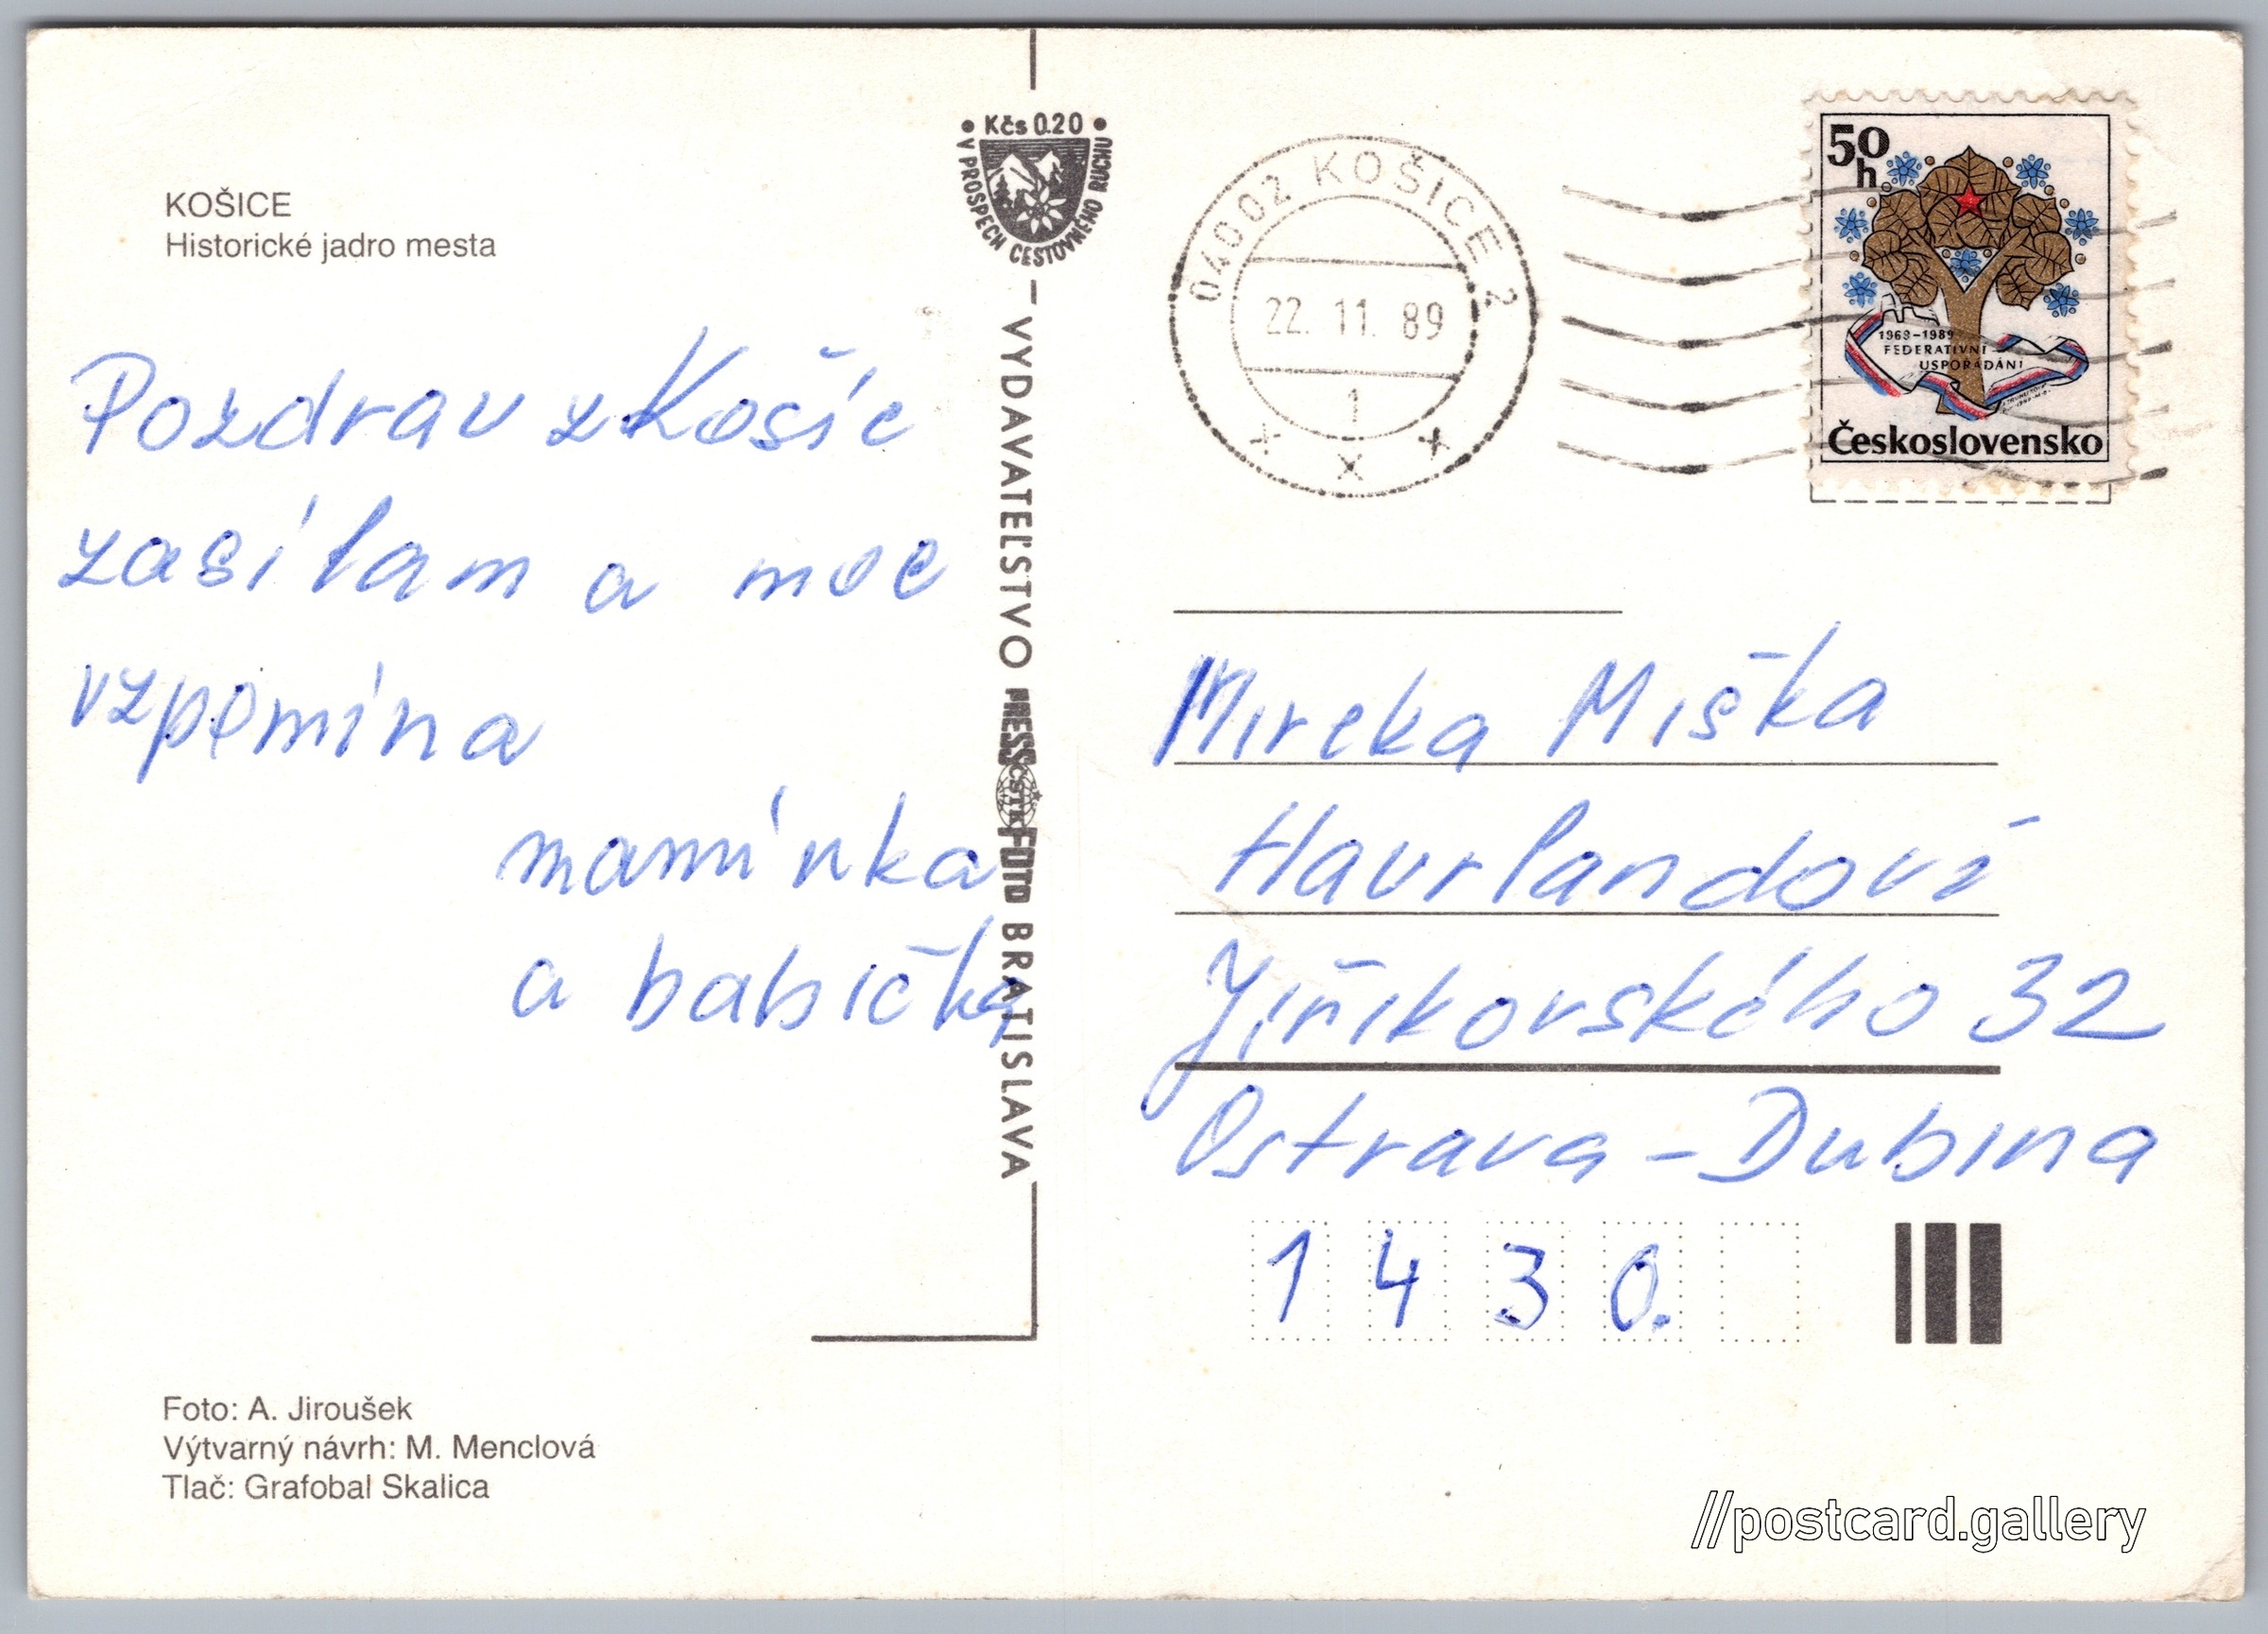 KOŠICE
Historické jadro mesta
Pozdrav z Košic
zasílam a moc
vzpomíná
maminka
a babička
Foto: A. Jiroušek
Výtvarný návrh: M. Menclová
Tlač: Grafobal Skalica
Kčs 0.20
V PROSPECH CESTOVNÉHO RUCHU
VYDAVATEĽSTVO PRESSFOTO BRATISLAVA
ČSTK
04002 KOŠICE 2
22. 11. 89
1
50 h
1969-1989
FEDERATIVNÍ
USPOŘÁDÁNÍ
Československo
Mireka Miška
Havrlandovi
Jiříkovského 32
Ostrava - Dubina
1 4 3 0.
//postcard.gallery